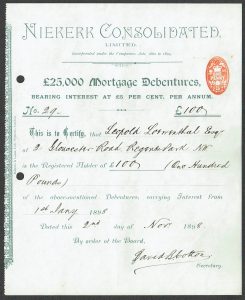 NIEKERK CONSOLIDATED,
LIMITED.
Incorporated under the Companies Acts, 1862 to 1893.
£25,000 Mortgage Debentures,
BEARING INTEREST AT £6 PER CENT. PER ANNUM.
No. 29. £100
This is to Certify, that Leopold Loewenthal Esq
of 2 Gloucester Road, Regents Park NW
is the Registered Holder of £100 (One Hundred
Pounds)
of the above-mentioned Debentures, carrying Interest from
1st Jany 1898
Dated this 2nd day of Novr 1898
By order of the Board,
Secretary.